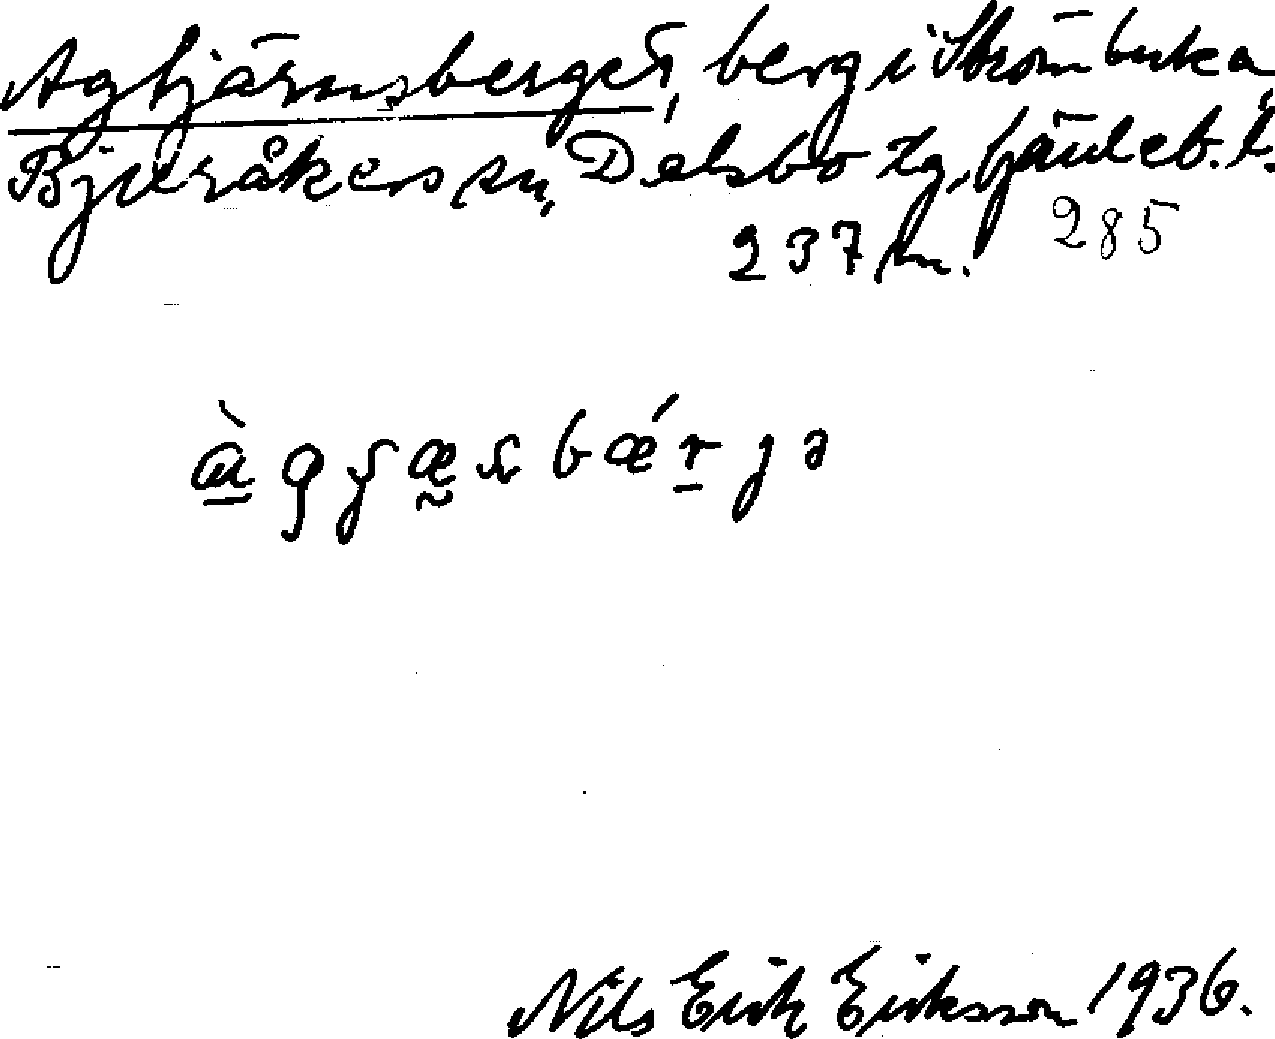 Agtjärnsberget, berg i Strömbacka,
Bjuråkers sn, Delsbo tg, Gävleb. l.
237 m. 285
Nils Erik Eriksson 1936.